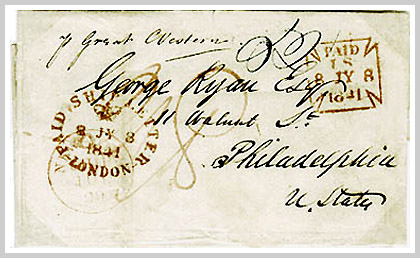 p Great Western
PAID
1S
8 JY 8
1841
George Ryan Esqr
11 Walnut St
Philadelphia
U. States
PAID SHIP LETTER
8 JY 8
1841
LONDON